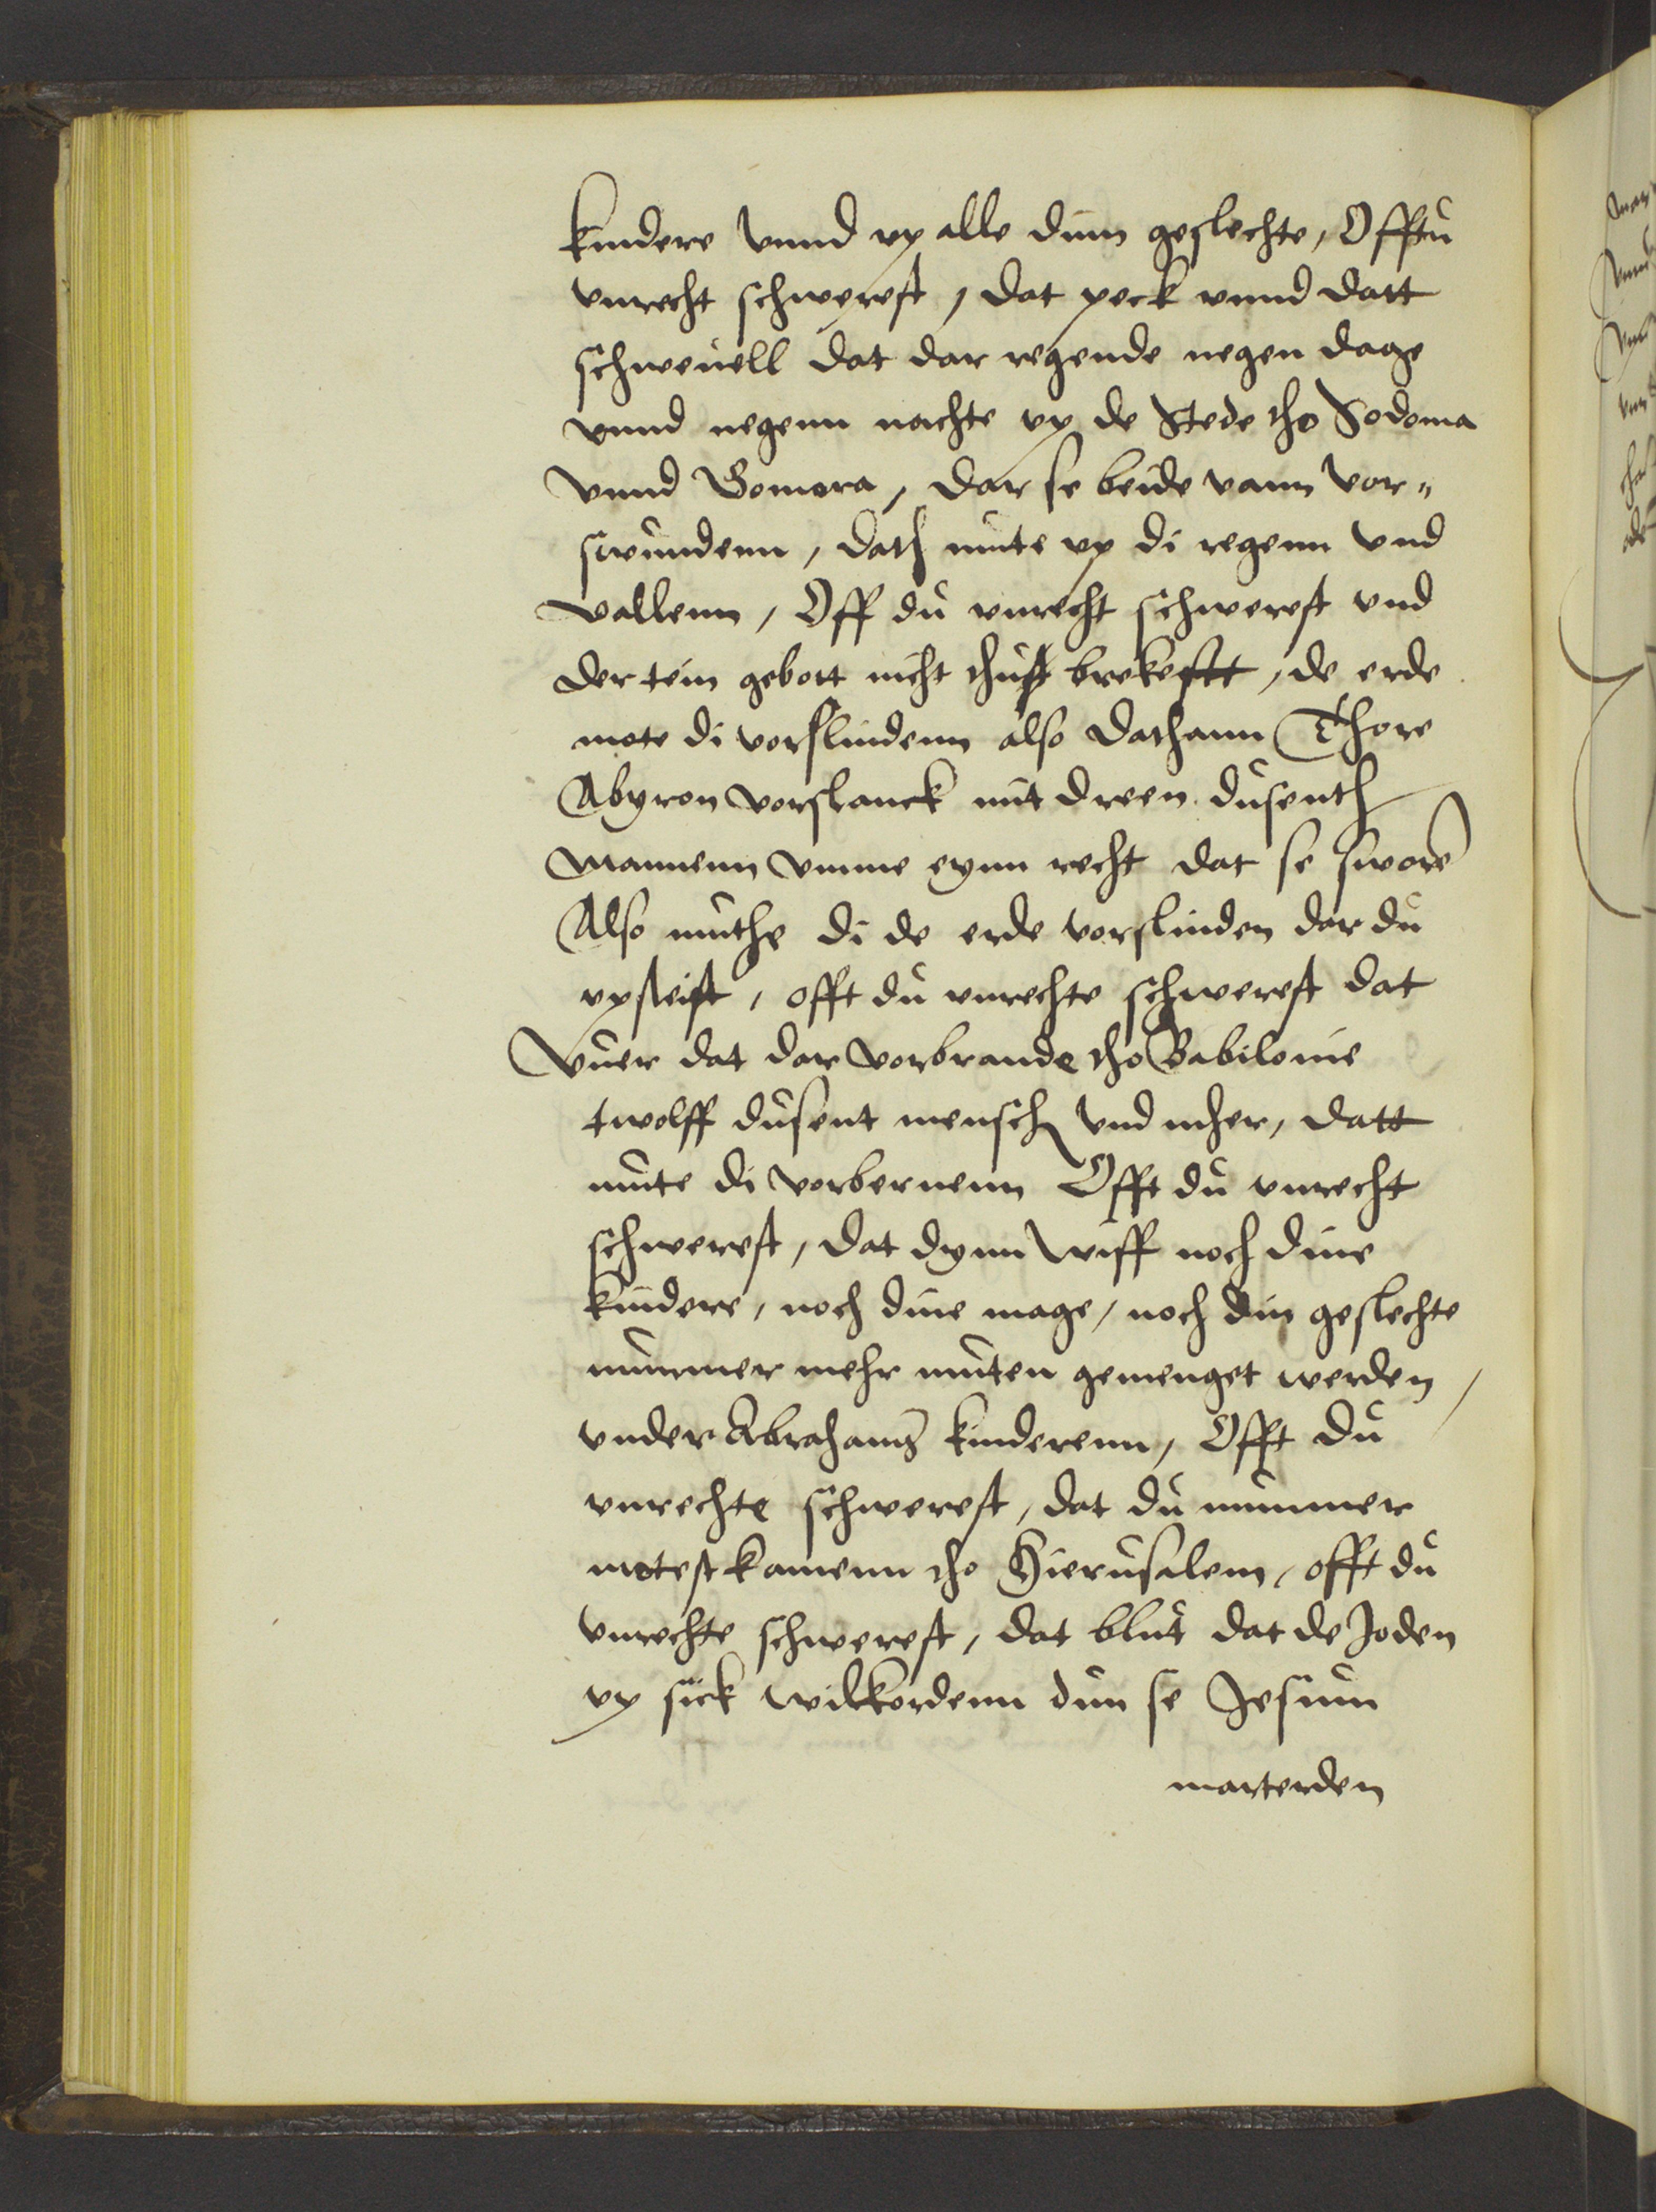 kindere vnnd vp alle dinn geslechte, Offtu
vnrecht schwerest, dat peck vnnd datt
schweuell dat dar regende negen dage
vnnd negenn nachte vp de Stede tho Sodoma
vnnd Gomora, dar se beide vann vor-
swundenn, dath mute vp di regenn vnd
vallenn, Off du vnrecht schwerest vnd
der tein gebott nicht brekestt, de erde
mote di vorslindenn also Dathann Chore
Abyron vorslanck mit dreen dusenth
Mannenn vmme eynn recht dat se sworē
Also muthe di de erde vorslinden dar du
vpsteist, offt du vnrechte schwerest dat
vuer dat dar vorbrande tho Babilonie
twolff dusent mensch vnd mher, datt
mute di vorbernenn Offt du vnrecht
schwerest, dat dynn wiff noch dine
kindere, noch dine mage, noch din geslechte
nummer mehr muten gemenget werden,
vnder Abrahams kinderenn, Offt du
vnrechte schwerest, dat du nummer
motest kamenn tho Hierusalem, offt du
vnrechte schwerest, dat blut dat de Joden
vp sick wilkordenn dun se Jesum
marterden